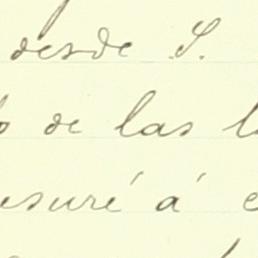 desde S.
de las
esuré á